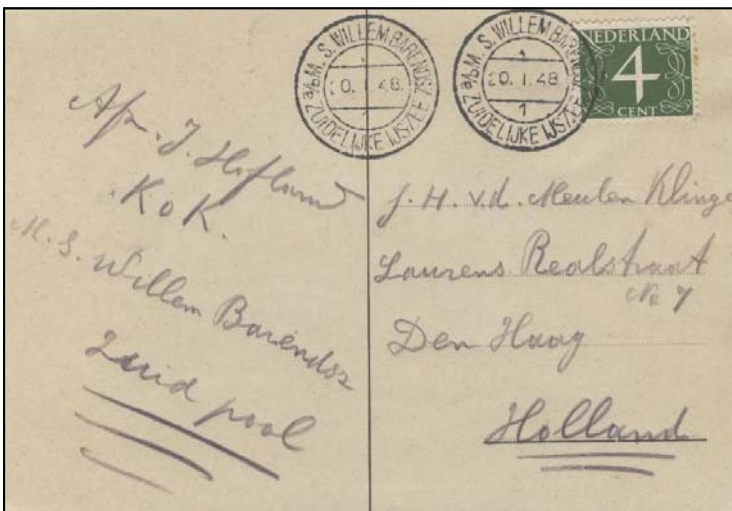 a/b M. S. WILLEM BARENDSZ
20. I. 48.
1
ZUIDELIJKE IJSZEE
a/b M. S. WILLEM BARENDSZ
20. I. 48.
1
ZUIDELIJKE IJSZEE
NEDERLAND
4
CENT
Afz. J. Hofland
Kok.
M. S. Willem Barendsz
Zuid pool
J. H. v.d. Meulen Klinge
Laurens Realstraat
No 7
Den Haag
Holland